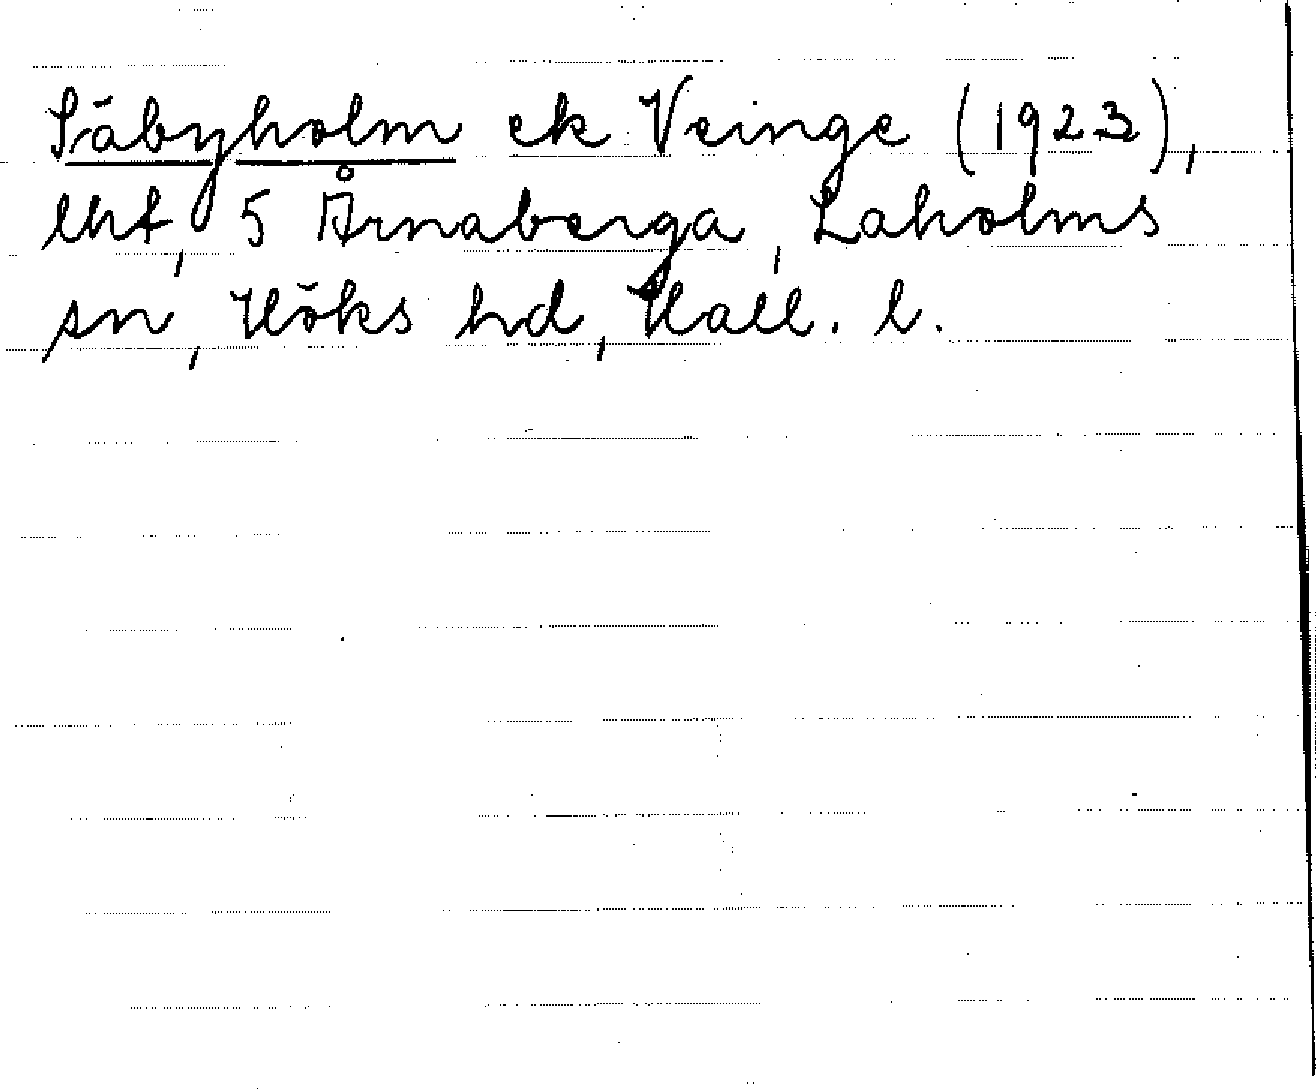 Säbyholm ek Veinge (1923),
lht, 5 Årnaberga, Laholms
sn, Höks hd, Hall. l.